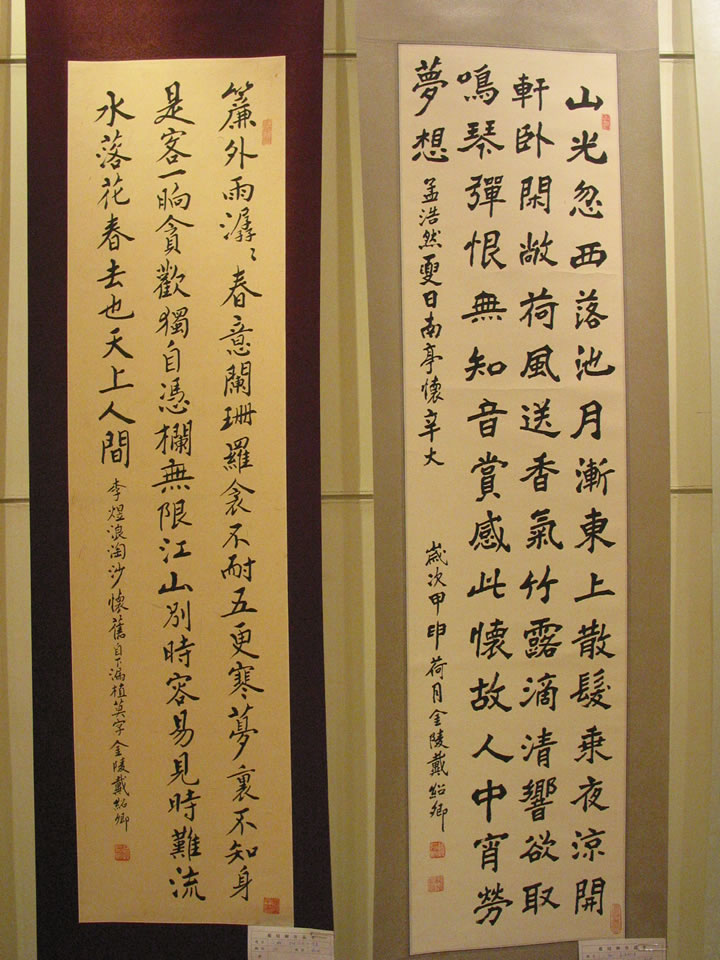 山光忽西落池月漸東上散髮乗夜涼開
軒卧閑敞荷風送香氣竹露滴清響欲取
鳴琴彈恨無知音賞感此懷故人中宵勞
夢想 孟浩然夏日南亭懷辛大 歲次甲申荷月金陵戴紹卿
簾外雨潺〻春意闌珊羅衾不耐五更寒夢裏不知身
是客一晌貪歡獨自憑欄無限江山別時容易見時難流
水落花春去也天上人間 李煜浪淘沙懷舊自下漏植莫字金陵戴紹卿